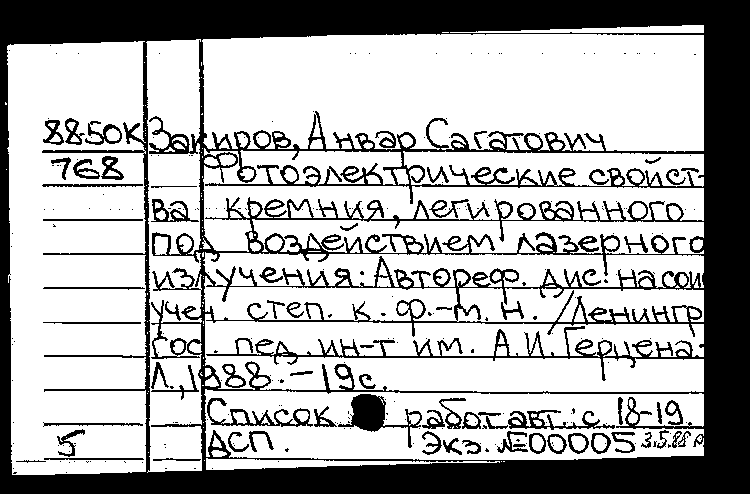 88-50К Закиров, Анвар Сагатович
768 Фотоэлектрические свойст-
ва кремния, легированного
под воздействием лазерного
излучения: Автореф. дис. на соис
учен. степ. к. ф.-м. н. /Ленингр
гос. пед. ин-т им. А.И. Герцена.-
Л., 1988. - 19 с.
Список работ авт.: с. 18-19.
5 ДСП. Экз. №00005 3.5.88